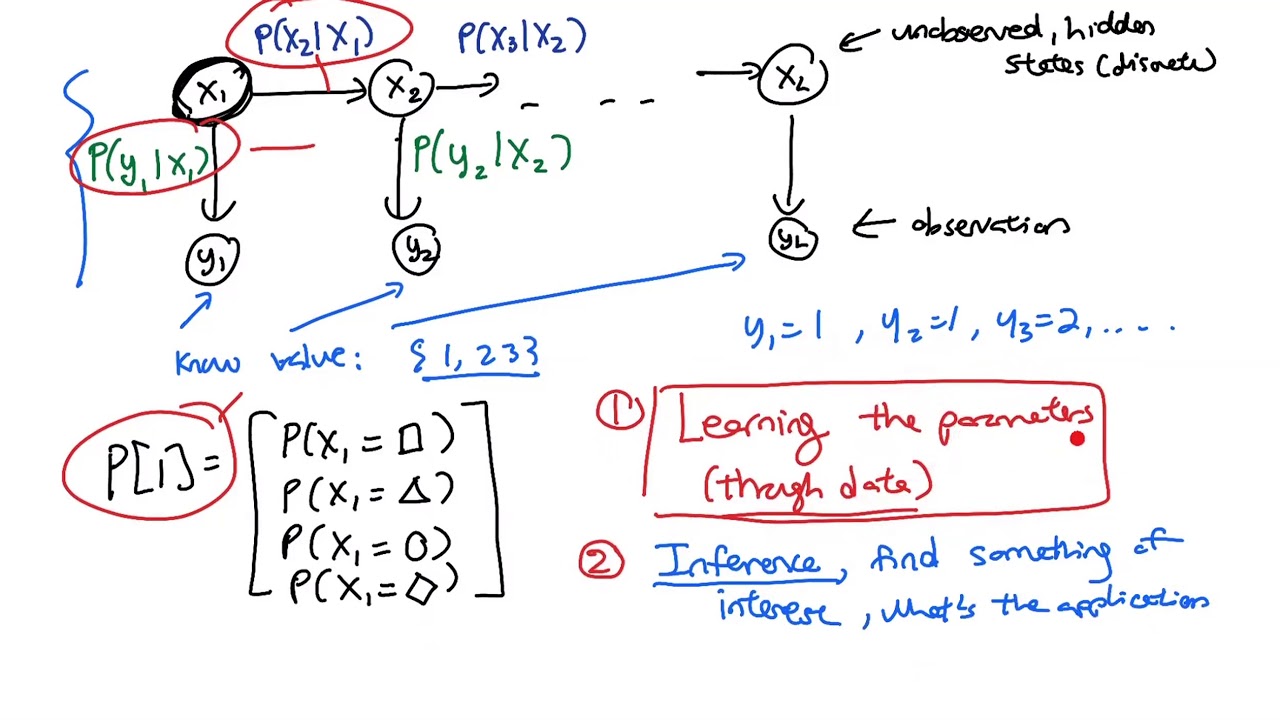 P(x₂|x₁) P(x₃|x₂)
unobserved, hidden
states (discrete)
x₁ x₂ - - - x_L
P(y₁|x₁) P(y₂|x₂)
y₁ y₂ y_L ← observations
y₁=1, y₂=1, y₃=2, ....
Know value: {1, 2 3}
P[1] =
P(x₁ = □)
P(x₁ = △)
P(x₁ = O)
P(x₁ = ◇)
① Learning the parameters
(through data)
② Inference, find something of
interese, what's the application